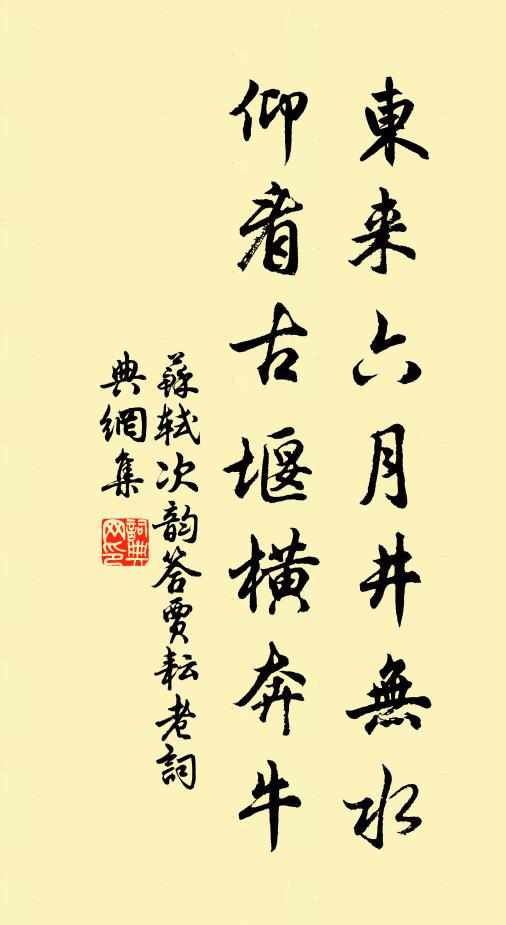 東来六月井無水
仰看古堰橫奔牛
蘇軾次韵答賈耘老詞
典網集
詞典網印